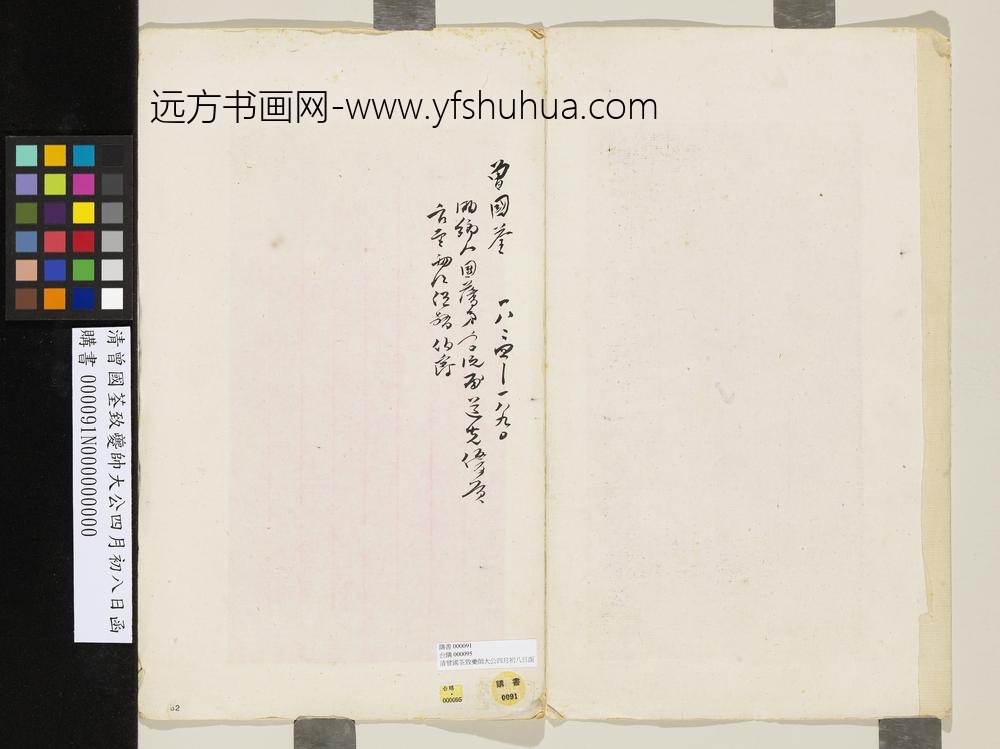 远方书画网-www.yfshuhua.com
曾國荃 一八二四—一八九〇
湘鄉人國藩弟字沅甫道光優貢
官至兩江總督伯爵
清曾國荃致夔帥大公四月初八日函
購書 000091N000000000
購書 000091
台購 000095
清曾國荃致夔帥大公四月初八日函
台購
000095
購書
0091
62